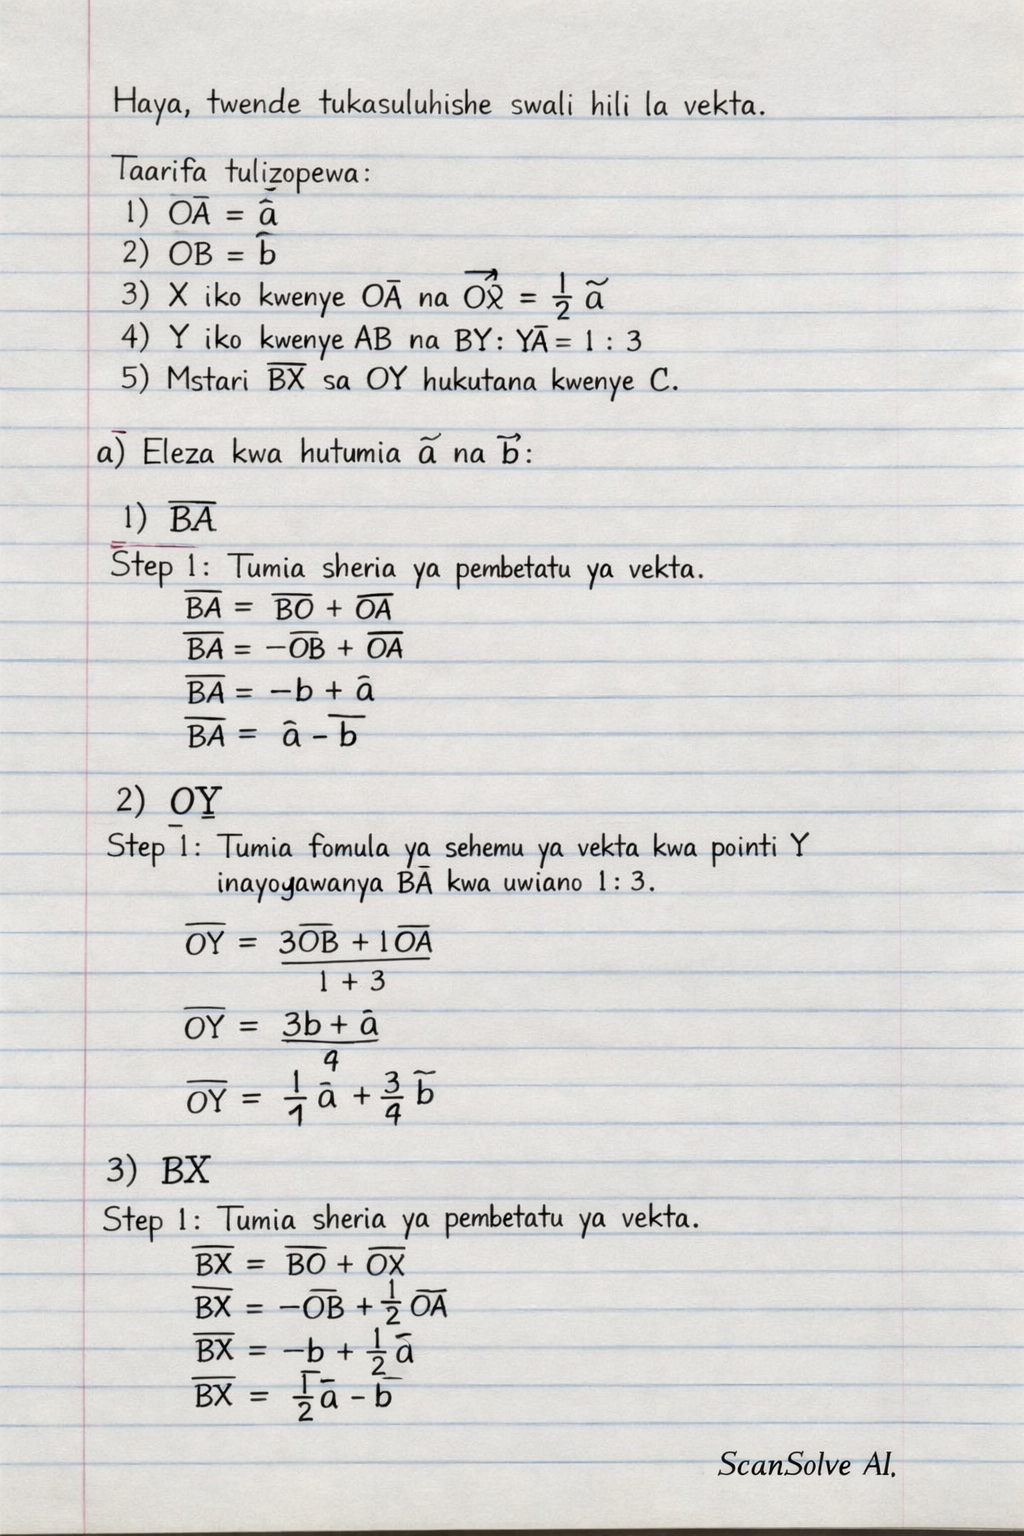 Haya, twende tukasuluhishe swali hili la vekta.
Taarifa tulizopewa:
1) OĀ = â
2) OB = b̄
3) X iko kwenye OĀ na OX⃗ = 1/2 ã
4) Y iko kwenye AB na BY: YĀ = 1 : 3
5) Mstari B̅X̅ sa OY hukutana kwenye C.
a) Eleza kwa hutumia ã na b⃗:
1) B̅A̅
Step 1: Tumia sheria ya pembetatu ya vekta.
B̅A̅ = B̅O̅ + O̅A̅
B̅A̅ = −O̅B̅ + O̅A̅
B̅A̅ = −b + â
B̅A̅ = â − b̅
2) OY̲
Step 1: Tumia fomula ya sehemu ya vekta kwa pointi Y
inayogawanya BĀ kwa uwiano 1 : 3.
O̅Y̅ = 3O̅B̅ + 1O̅A̅
1 + 3
O̅Y̅ = 3b + ā
9
O̅Y̅ = 1/1 ā + 3/9 b̃
3) BX
Step 1: Tumia sheria ya pembetatu ya vekta.
B̅X̅ = B̅O̅ + O̅X̅
B̅X̅ = −O̅B̅ + 1/2 O̅A̅
B̅X̅ = −b + 1/2 ā
B̅X̅ = 1/2 ā − b̄
ScanSolve AI.